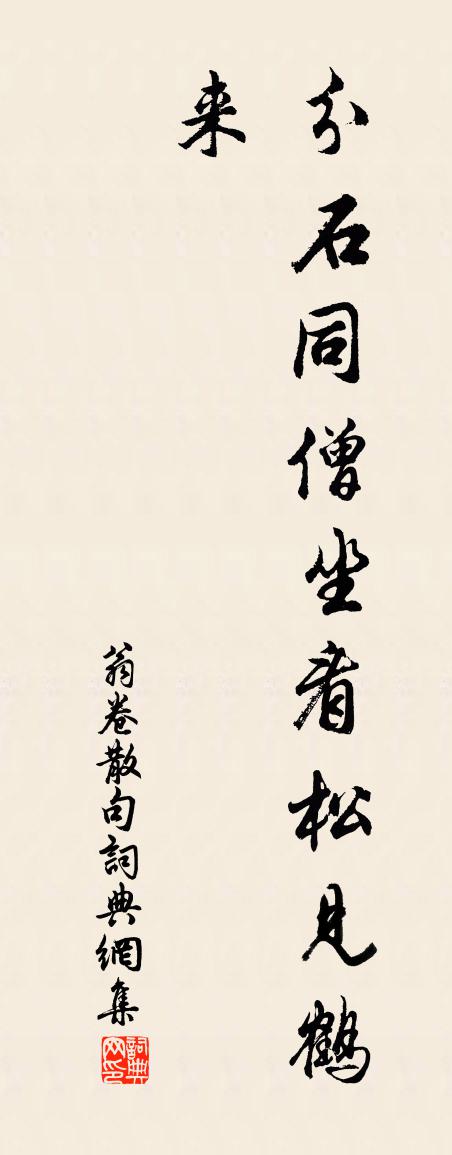 分石同僧坐看松見鶴
来
翁卷散句詞典網集
詞典网印